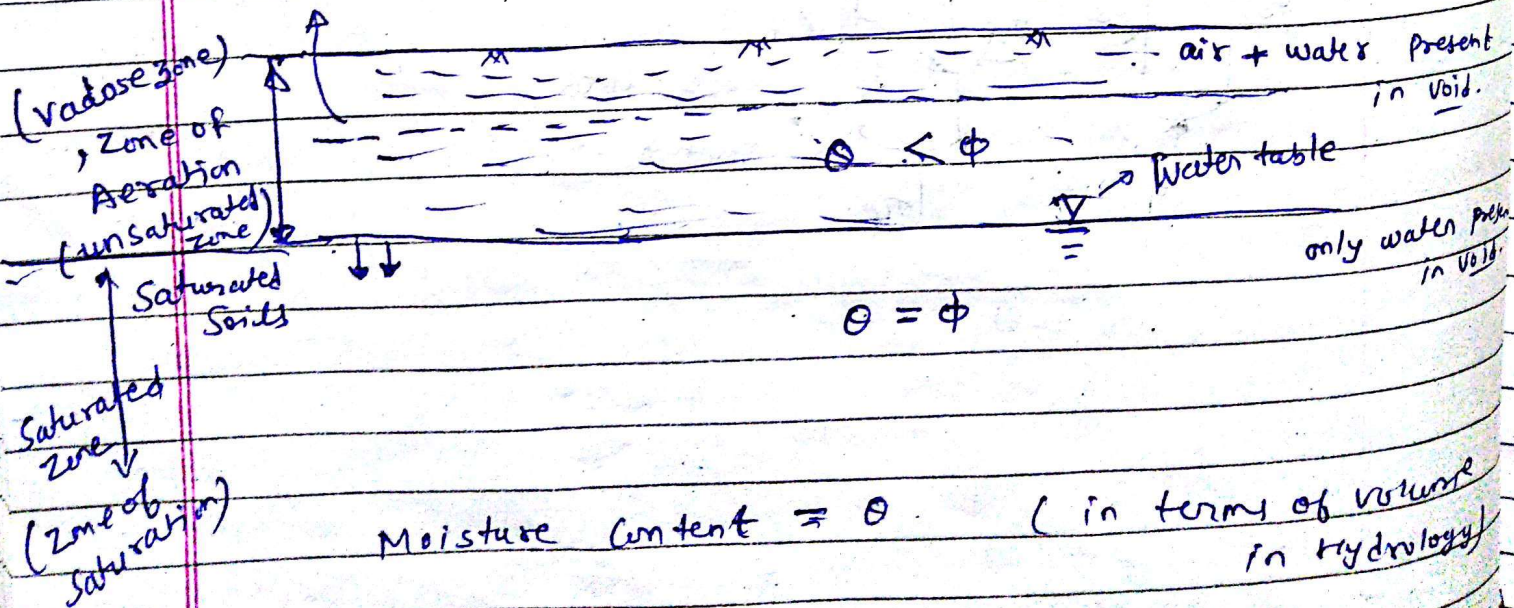 (vadose zone)
, Zone of
Aeration
(unsaturated
zone)
air + water present
in void.
θ < φ
Water table
only water
in void.
Saturated
Soils
θ = φ
Saturated
Zone
(Zone of
Saturation)
Moisture Content = θ. (in terms of volume
in Hydrology)